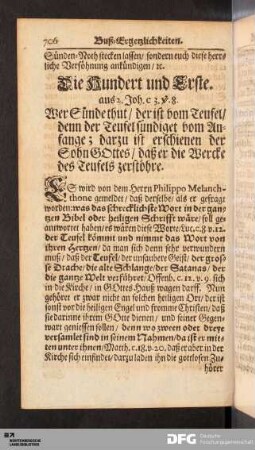 706 Buß-Ergetzlichkeiten.
Sünden-Noth stecken lassen / sondern euch diese herr-
liche Versöhnung ankündigen / ꝛc.
Die Hundert und Erste.
aus 2. Joh. c 3. ℣. 8
Wer Sünde thut / der ist vom Teufel /
denn der Teufel sündiget vom An-
fange; darzu ist erschienen der
Sohn GOttes / daß er die Wercke
des Teufels zerstöhre.
ES wird von dem Herrn Philippo Melanch-
thone gemeldet / daß derselbe / als er gefragt
worden: was das schrecklichste Wort in der gan-
zen Bibel oder heiligen Schrifft wäre / soll ge-
antwortet haben / es wären diese Worte / Luc. c. 8 v. 12.
der Teufel kömmt und nimmt das Wort von
ihren Hertzen / da man sich denn sehr verwundern
muß / daß der Teufel / der unsaubere Geist / der gros-
se Drache / die alte Schlange / der Satanas / der
die gantze Welt verführet / Offenb. c. 12. v. 9. sich
in die Kirche / in GOttes-Hauß wagen darff. Nun
gehöret er zwar nicht an solchen heiligen Ort / der ist
sonst vor die heiligen Engel und fromme Christen / daß
sie darinne ihrem GOtte dienen / und seiner Gegen-
wart geniessen sollen / denn wo zween oder dreye
versamlet sind in seinem Nahmen / da ist er mit-
ten unter ihnen / Matth. c. 18. v. 20. daß er aber in der
Kirche sich einfindet / darzu laden ihn die gottlosen Zu-
hörer
DFG Deutsche
Forschungsgemeinschaft